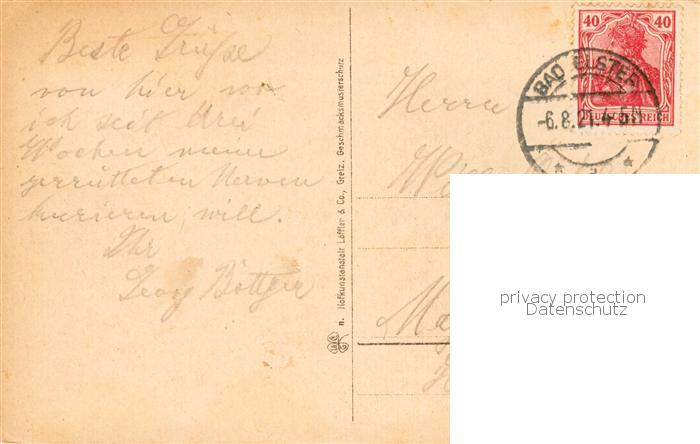 Beste Grüße
von hier wo
ich seit drei
Wochen meine
zerrütteten Nerven
kurieren will.
Ihr
Georg Böttger
n. Hofkunstanstalt Löffler & Co., Greiz. Geschmacksmusterschutz
40 40
DEUTSCHES REICH
BAD ELSTER
-6.8.21.4-5N
* a *
Herrn
privacy protection
Datenschutz